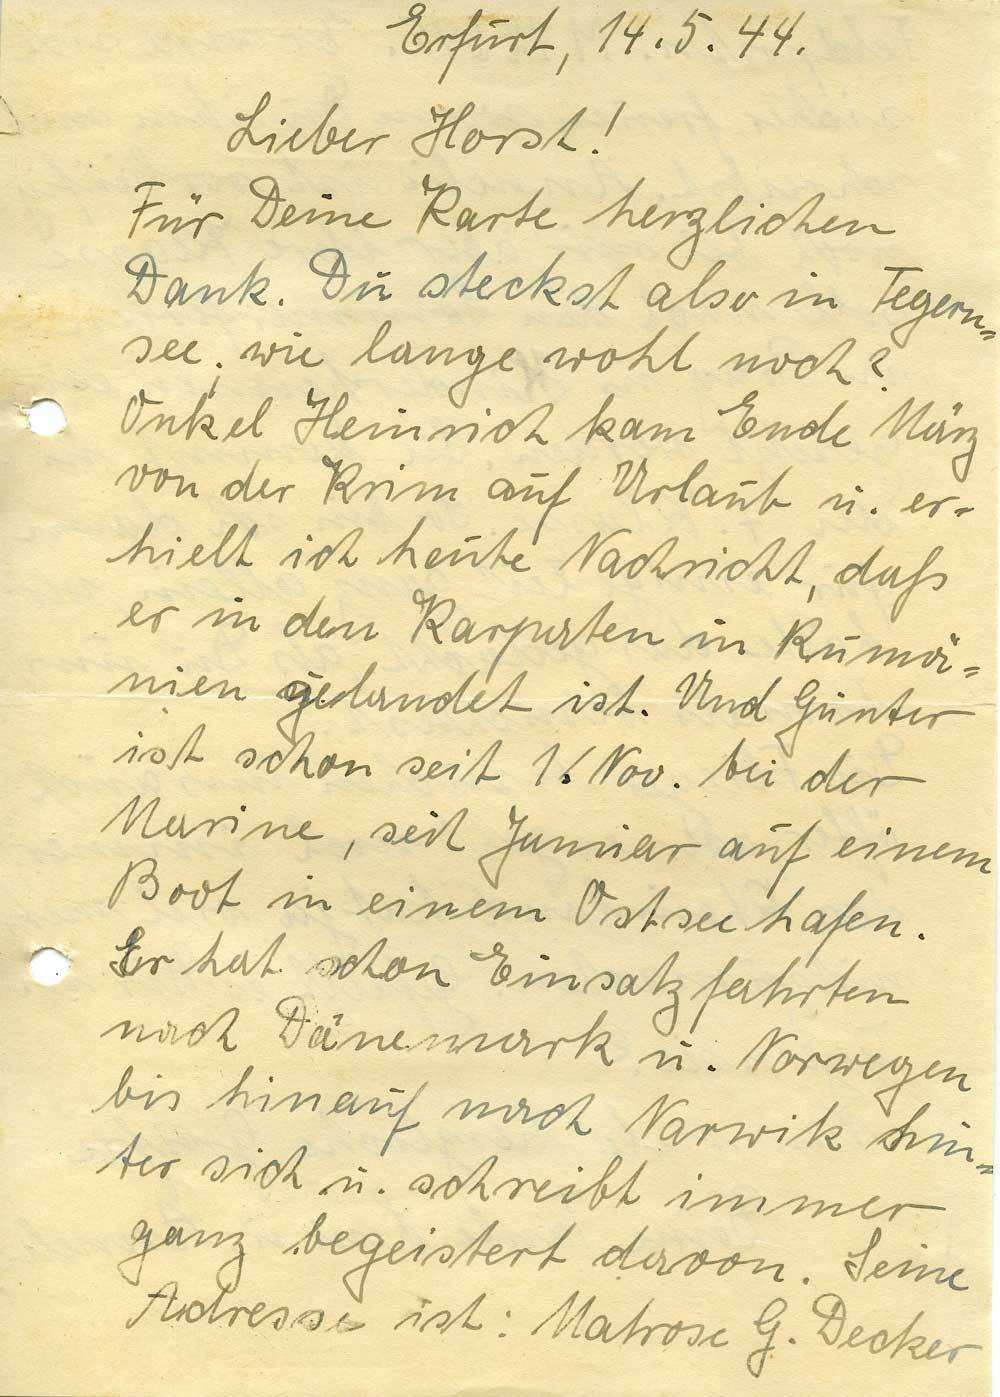 Erfurt, 14.5.44.
Lieber Horst!
Für Deine Karte herzlichen
Dank. Du steckst also in Tegern=
see, wie lange wohl noch?
Onkel Heinrich kam Ende März
von der Krim auf Urlaub u. er=
hielt ich heute Nachricht, daß
er in den Karpaten in Rumä=
nien gelandet ist. Und Günter
ist schon seit 1. Nov. bei der
Marine, seit Januar auf einem
Boot in einem Ostseehafen.
Er hat schon Einsatzfahrten
nach Dänemark u. Norwegen
bis hinauf nach Narwik hin=
ter sich u. schreibt immer
ganz begeistert davon. Seine
Adresse ist: Matrose G. Decker